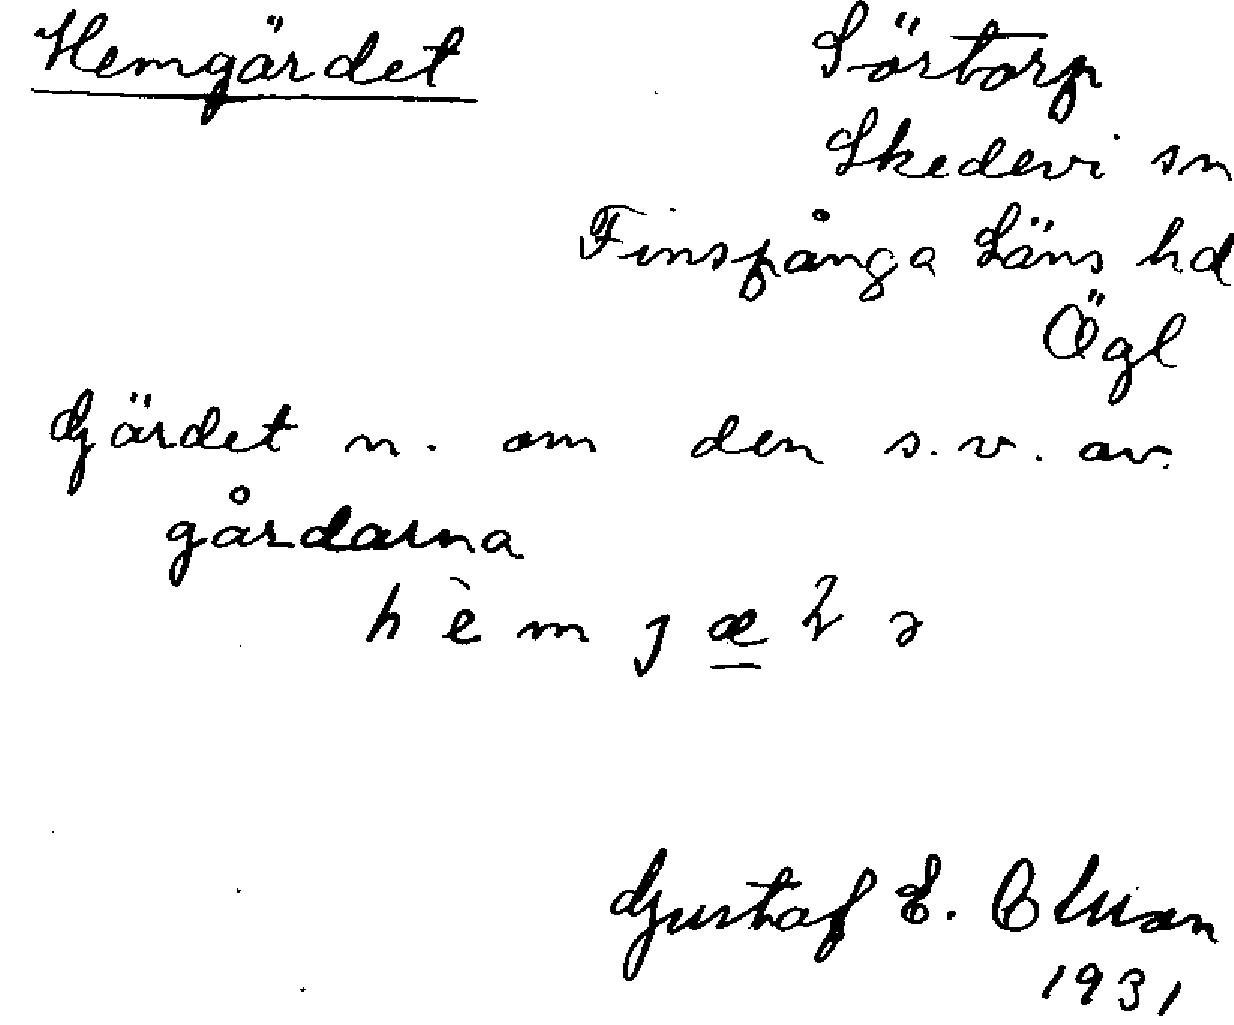 Hemgärdet
Sörtorp
Skedevi sn
Finspånga Läns hd
Ögl
Gärdet n. om den s.v. av
gårdarna
Gustaf E.
1931